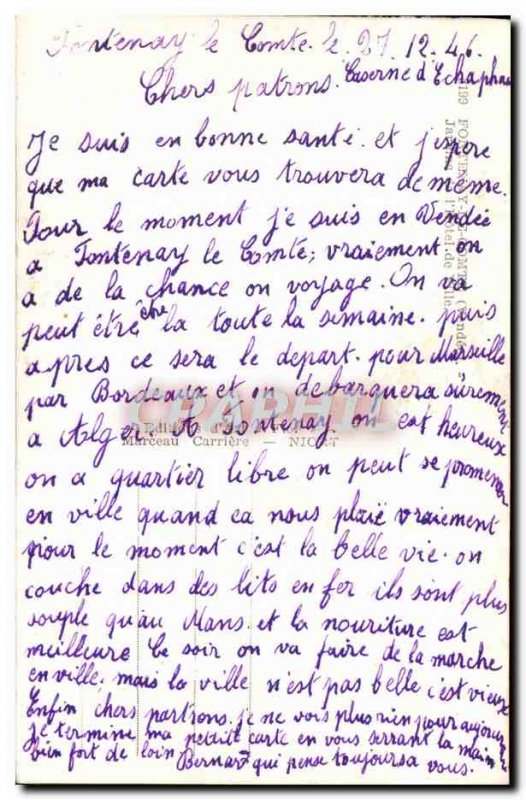 Fontenay le Comte le 27.12.46.
Caserne d'Echaphau
Chers patrons.
Je suis en bonne santé. et j'espere
que ma carte vous trouvera de meme.
Pour le moment je suis en Vendée
a Fontenay le Comte, vraiment on
a de la chance on voyage. On va
peut être être la toute la semaine. puis
apres ce sera le depart. pour Marseille
par Bordeaux et on debarquera sûrement
a Alger. A Fontenay on est heureux
on a quartier libre on peut se promener
en ville quand ca nous plaie vraiment
pour le moment c'est la belle vie. on
couche dans des lits en fer ils sont plus
souple qu'au Mans. et la nouriture est
meilleure Ce soir on va faire de la marche
en ville. mais la ville n'est pas belle c'est vieux
Enfin chers partrons. je ne vois plus rien pour aujourd
je termine ma petdite carte en vous serrant la main
bien fort de loin. Bernard qui pense toujours a vous.
199 FONTENAY-LE-COMTE (Vendée)
Hôtel de Ville
CARPHIL
Marceau Carrière — NIORT